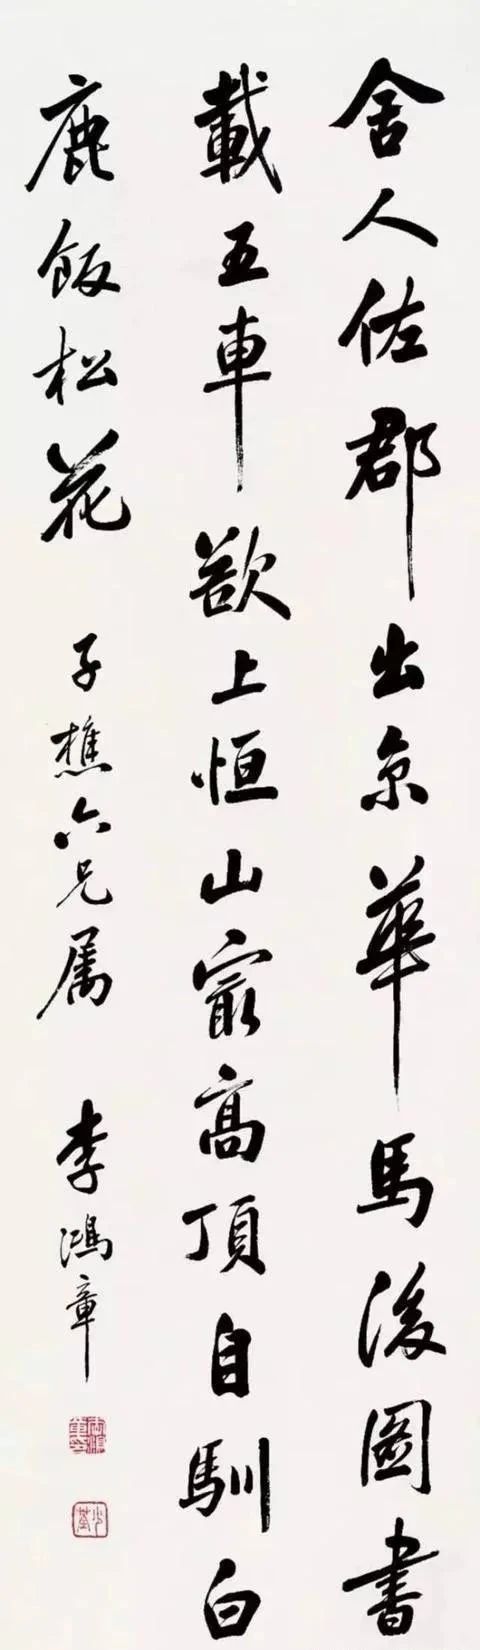 舍人佐郡出京華馬後圖書
載五車欲上恒山最高頂自馴白
鹿飯松花
子樵六兄属
李鴻章